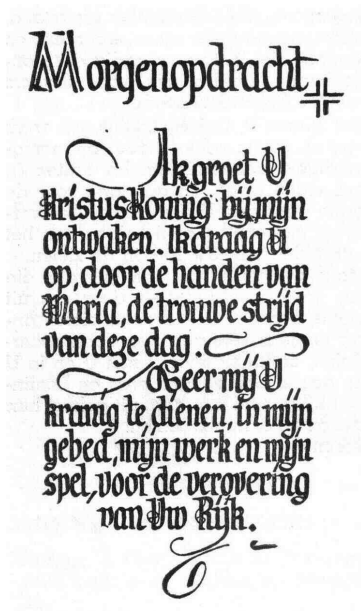 Morgenopdracht
Ik groet U
Kristus Koning bij mijn
ontwaken. Ik draag U
op, door de handen van
Maria, de trouwe strijd
van deze dag.
Leer mij U
kranig te dienen, in mijn
gebed, mijn werk en mijn
spel, voor de verovering
van Uw Rijk.